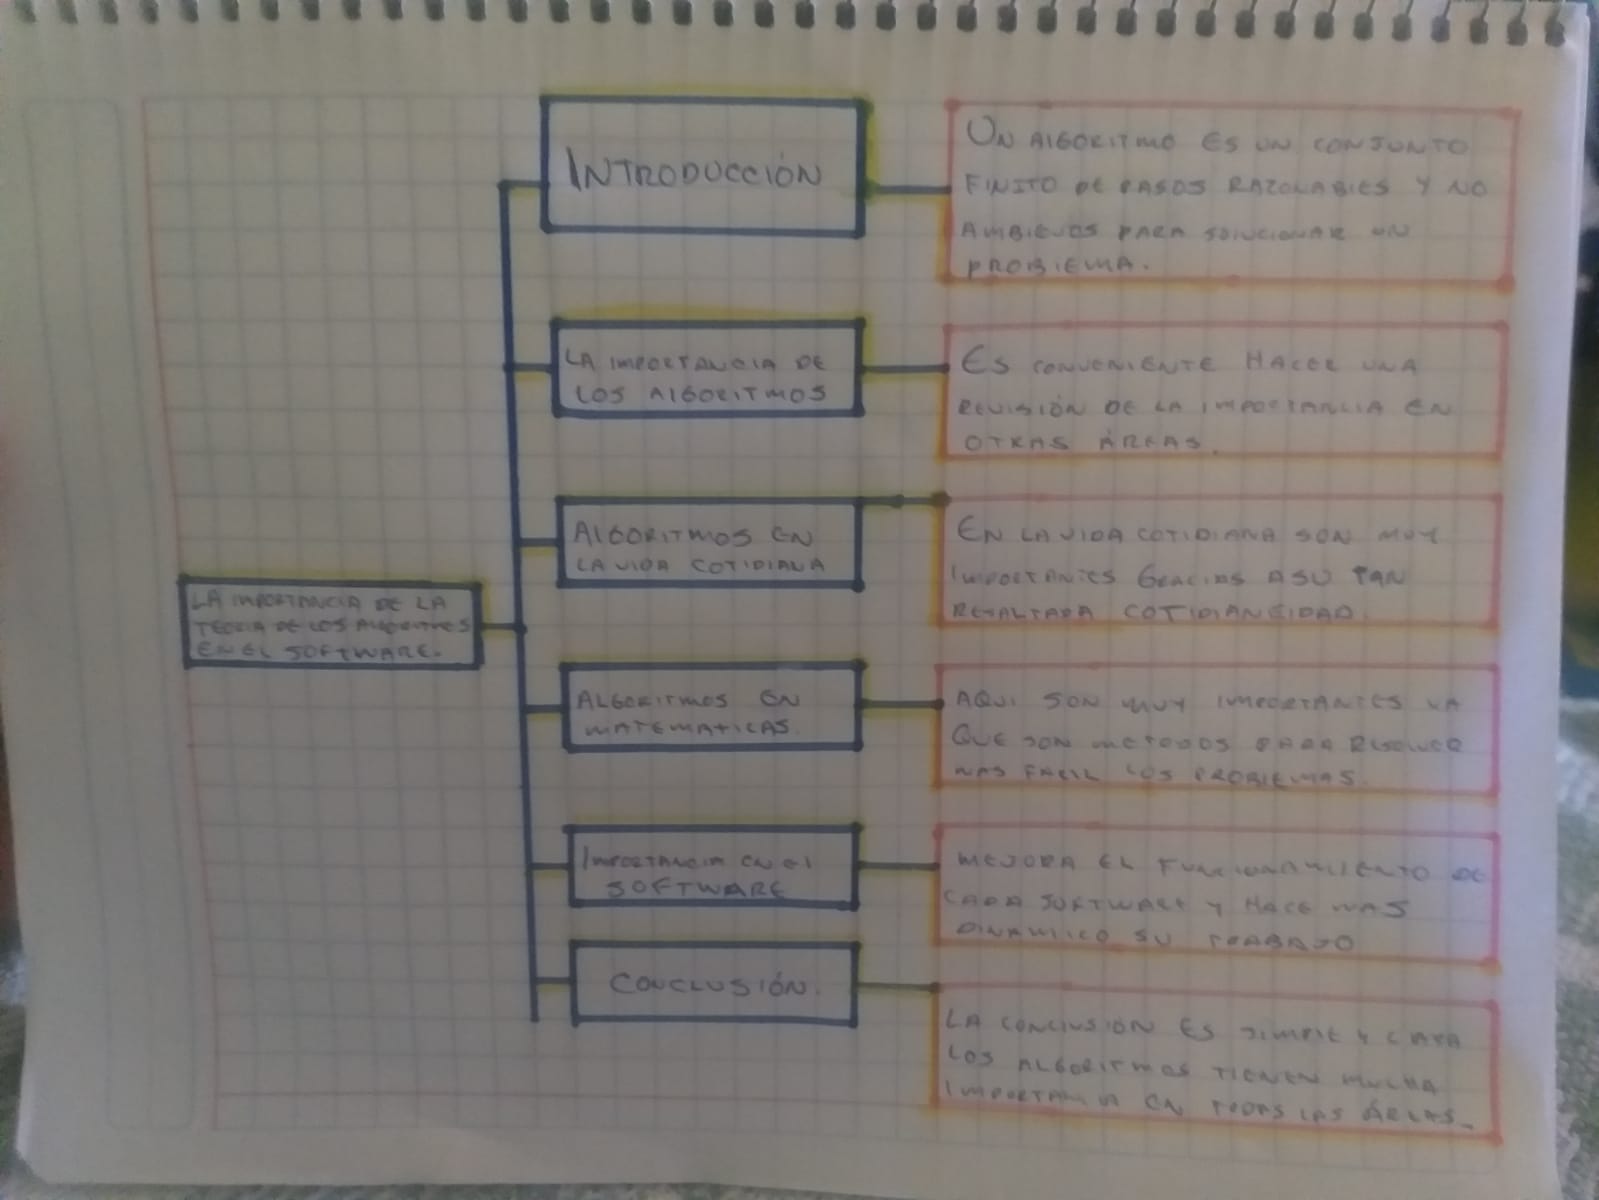 INTRODUCCIÓN
UN ALGORITMO ES UN CONJUNTO
FINITO DE PASOS RAZONABLES Y NO
AMBIEUOS PARA SOLUCIONAR UN
PROBLEMA.
LA IMPORTANCIA DE
LOS ALGORITMOS
ES CONVENIENTE HACER UNA
REVISIÓN DE LA IMPORTANCIA EN
OTRAS ÁREAS.
ALGORITMOS EN
LA VIDA COTIDIANA
EN LA VIDA COTIDIANA SON MUY
IMPORTANTES GRACIAS A SU TAN
RESALTADA COTIDIANEIDAD.
LA IMPORTANCIA DE LA
TEORIA DE LOS ALGORITMOS
EN EL SOFTWARE.
ALGORITMOS EN
MATEMATICAS.
AQUI SON MUY IMPORTANTES YA
QUE SON METODOS PARA RESOLVER
MAS FACIL LOS PROBLEMAS.
IMPORTANCIA EN EL
SOFTWARE
MEJORA EL FUNCIONAMIENTO DE
CADA SOFTWARE Y HACE MAS
DINAMICO SU TRABAJO
CONCLUSIÓN.
LA CONCLUSIÓN ES SIMPLE Y CLARA
LOS ALGORITMOS TIENEN MUCHA
IMPORTANCIA EN TODAS LAS ÁREAS.